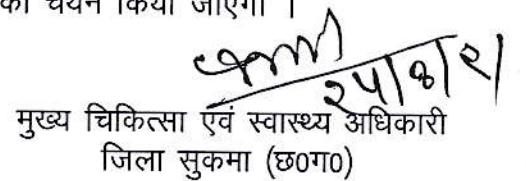 का चयन किया जाएगा ।
मुख्य चिकित्सा एवं स्वास्थ्य अधिकारी
जिला सुकमा (छ0ग0)